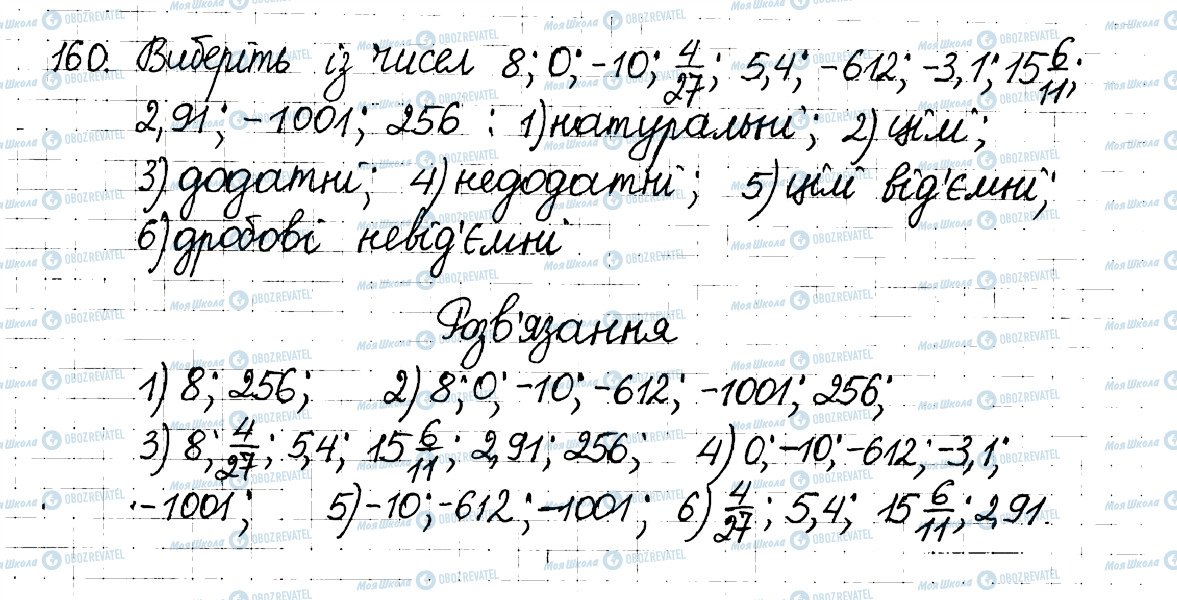 160. Виберіть із чисел 8; 0; -10; 4/27; 5,4; -612; -3,1; 15 6/11;
2,91; -1001; 256 : 1) натуральні; 2) цілі;
3) додатні; 4) недодатні; 5) цілі від'ємні;
6) дробові невід'ємні
Розв'язання
1) 8; 256; 2) 8; 0; -10; -612; -1001; 256;
3) 8; 4/27; 5,4; 15 6/11; 2,91; 256; 4) 0; -10; -612; -3,1;
-1001; 5) -10; -612; -1001; 6) 4/27; 5,4; 15 6/11; 2,91.